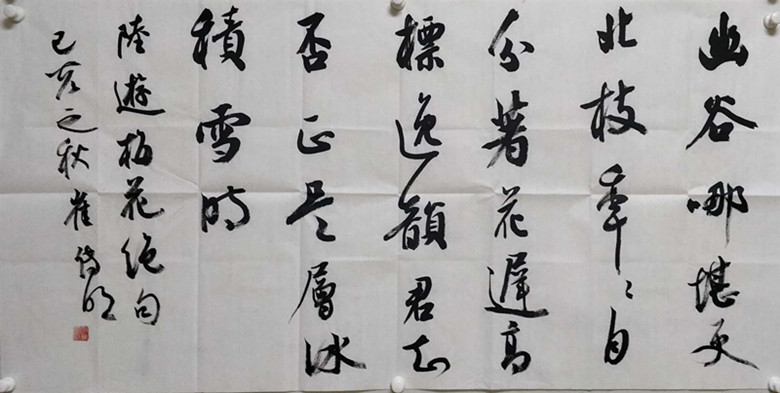 幽谷哪堪更
北枝年々自
分著花遲高
標逸韻君知
否正是層冰
積雪時
陸遊梅花絕句
己亥之秋崔诗明